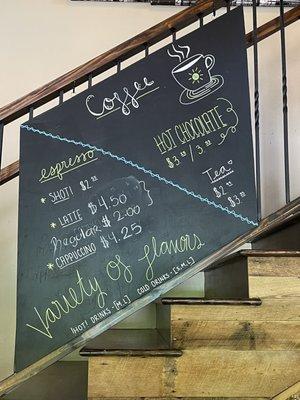 Coffee
HOT CHOCOLATE
$3.00 / 3.50
Tea
$2.00
$3.00
espresso
* SHOT! $2.00
* LATTE $4.50
Regular $2.00
* CAPPUCCINO $4.25
Variety of flavors
HOT! DRINKS - [M.L] COLD DRINKS - [S.M.L]